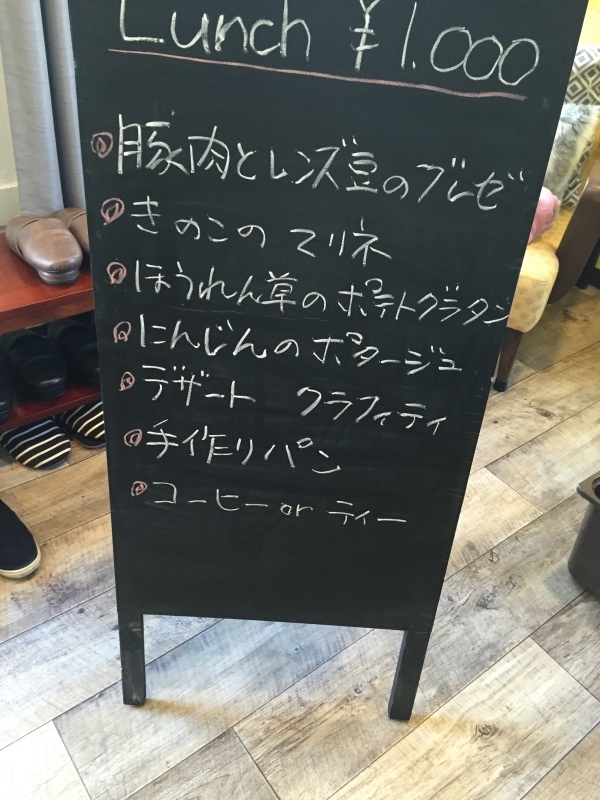 Lunch ¥1.000
豚肉とレンズ豆のブレゼ
きのこのマリネ
ほうれん草のポテトグラタン
にんじんのポタージュ
デザート クラフィティ
手作りパン
コーヒー or ティー